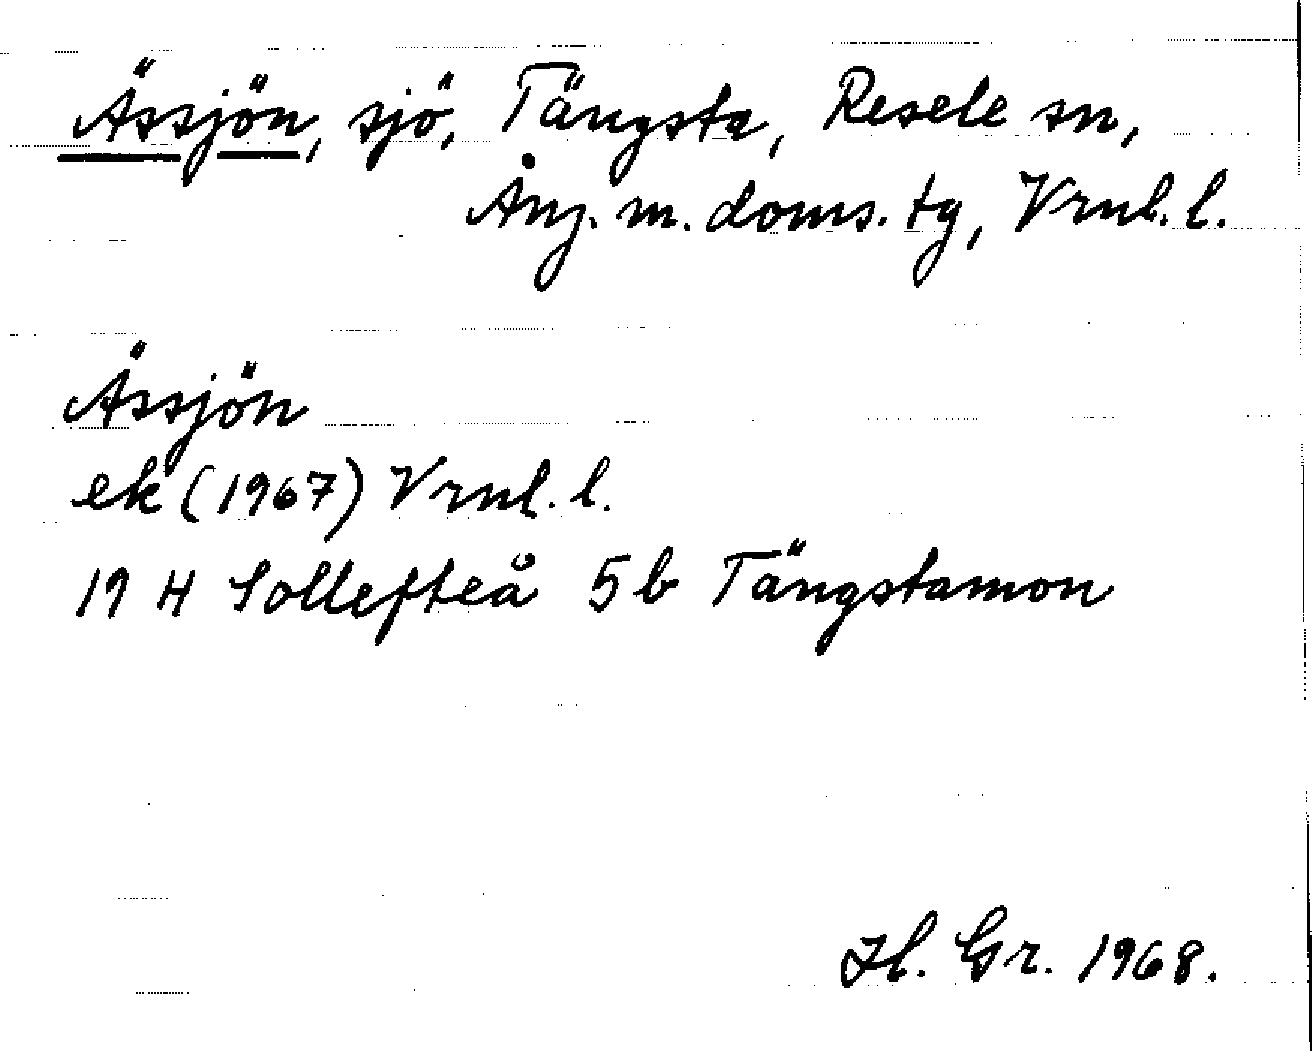 Ässjön, sjö, Tängsta, Resele sn,
Ång. m. doms. tg, Vrnl. l.
Ässjön
ek (1967) Vrnl. l.
19 H Sollefteå 5b Tängstamon
Hl. Gr. 1968.